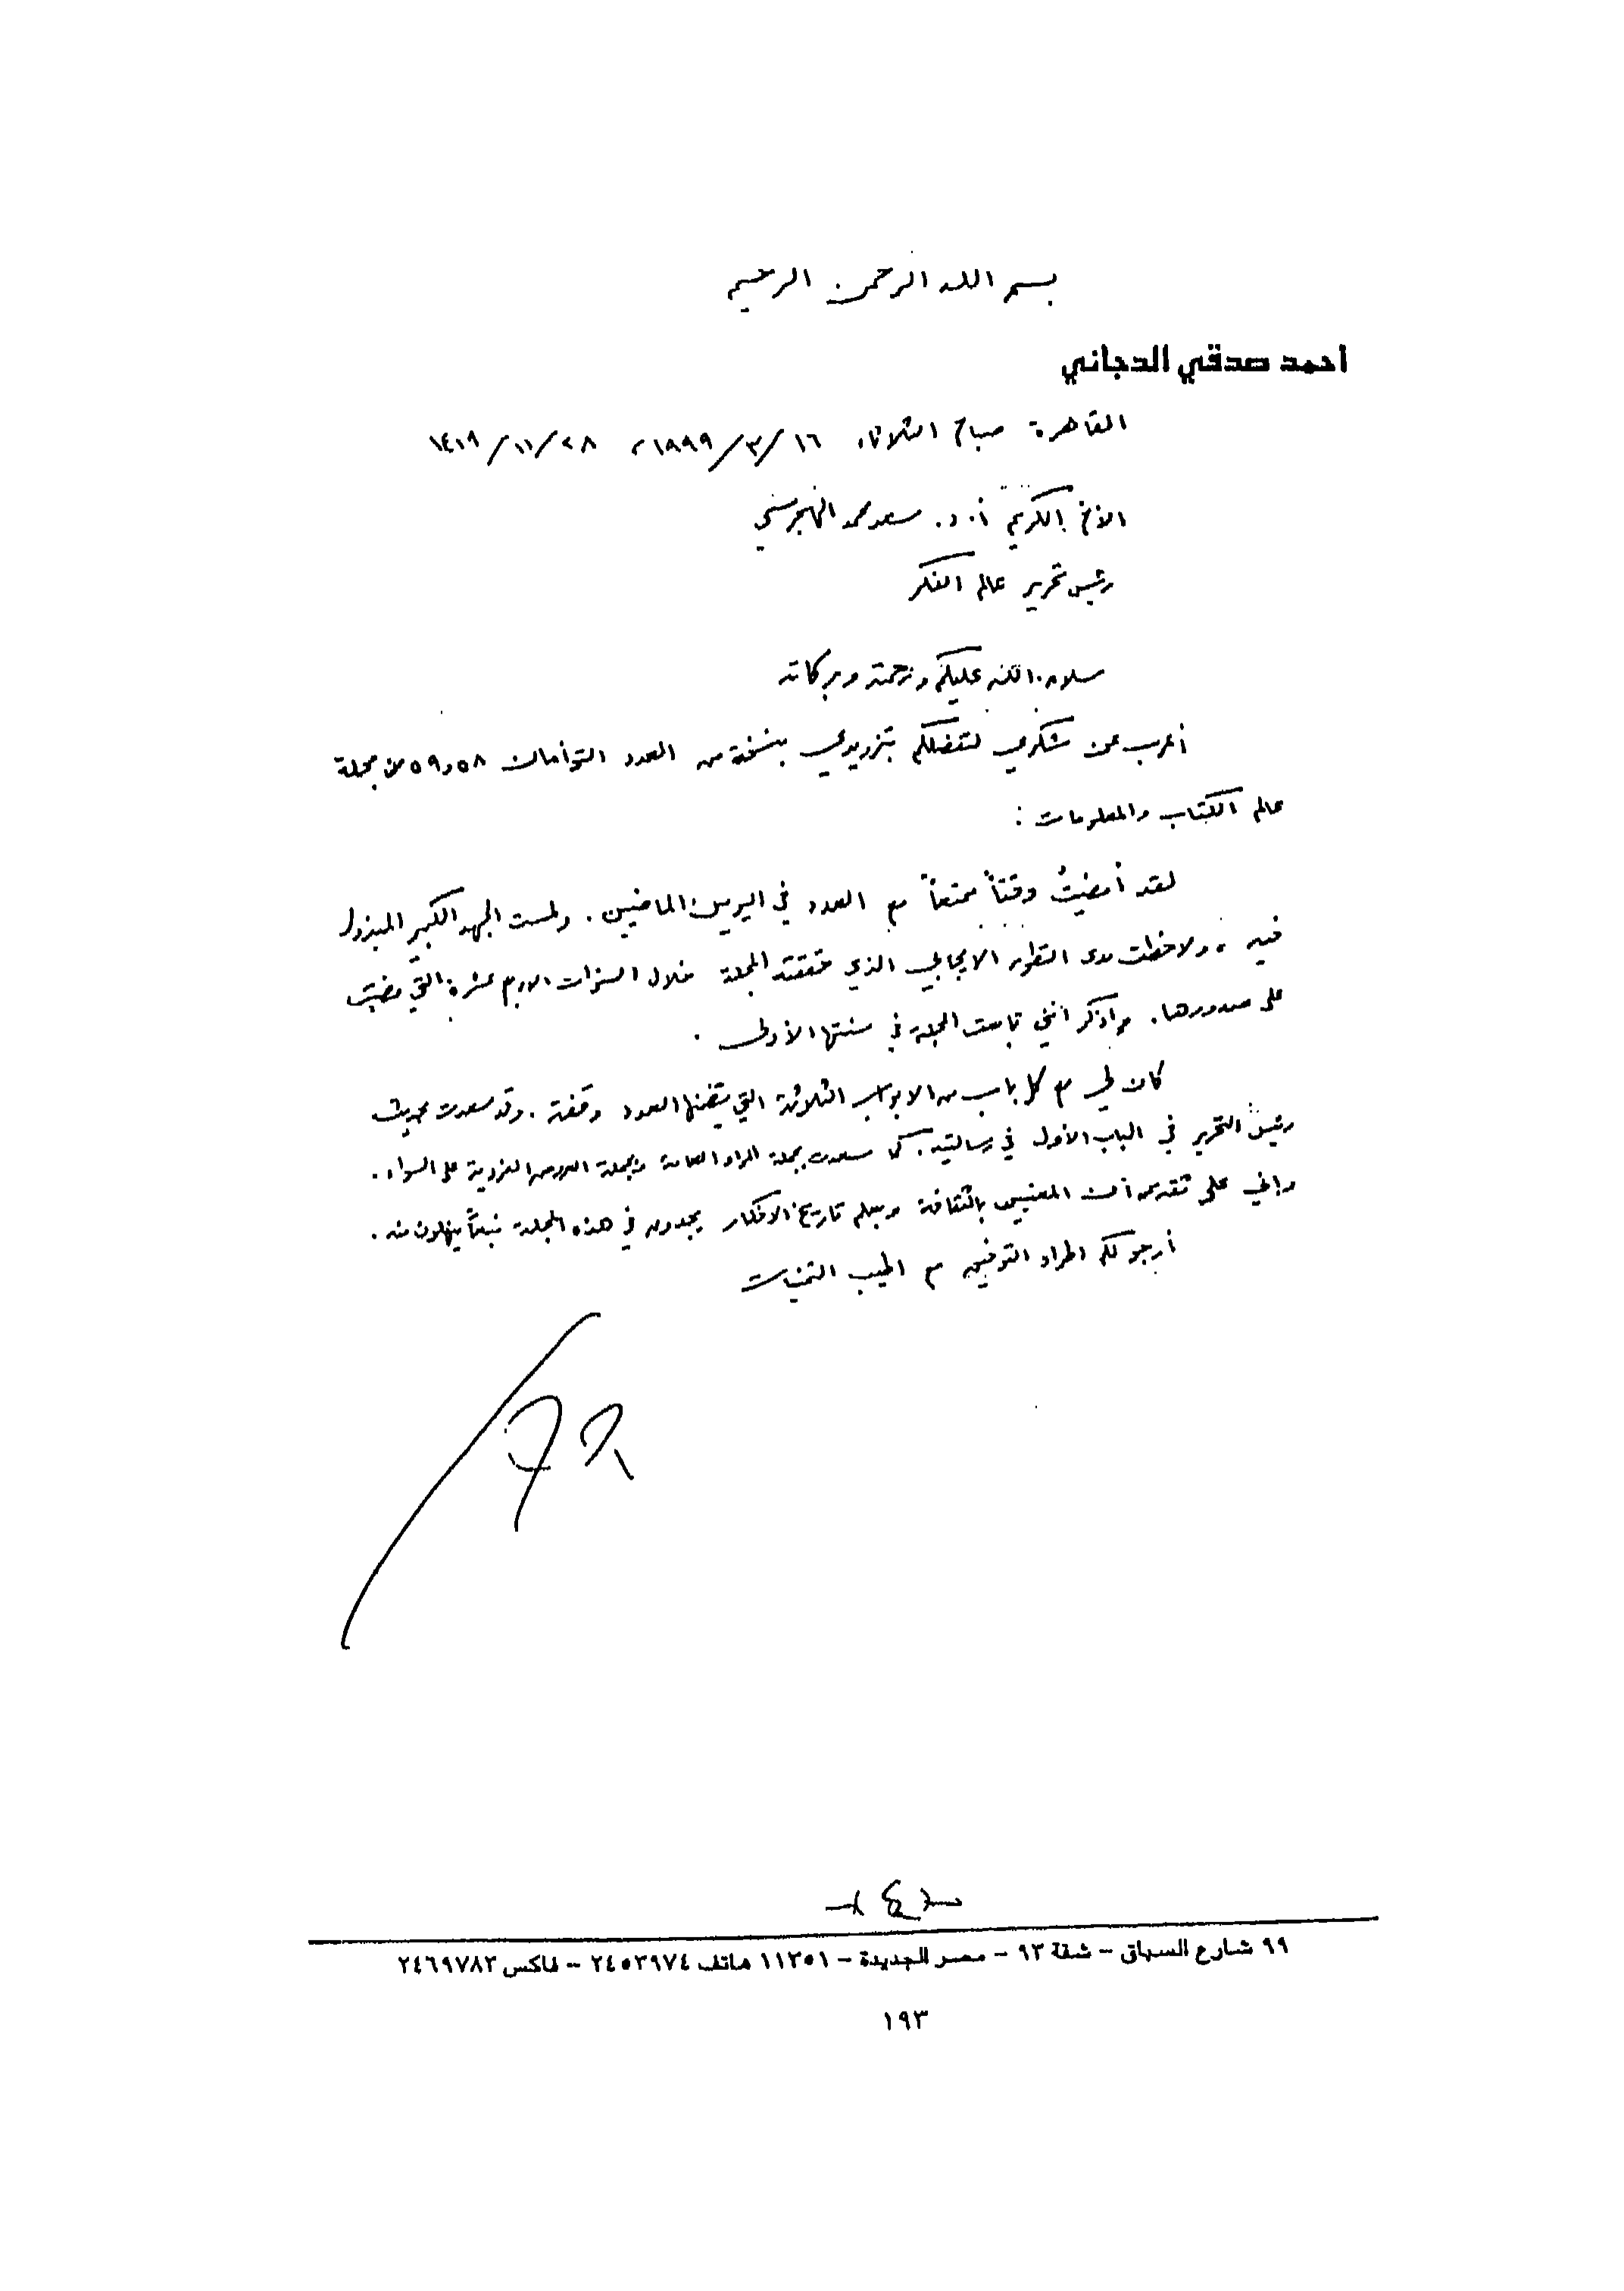 بسم الله الرحمن الرحيم
أحمد صدقي الدجاني
القاهرة صباح الثلاثاء ١٦/٣/١٩٩٩م ٢٨/١١/١٤١٩
الأخ الكريم أ.د. سعد محمد الهجرسي
رئيس تحرير عالم الفكر
سلام الله عليكم ورحمته وبركاته
أعرب عن شكري لتفضلكم بتزويدي بنسخة من العدد التوأمان ٥٨و٥٩ من مجلة
عالم الكتاب والمعلومات :
لقد أمضيتُ وقتاً ممتعاً مع العدد في اليومين الماضيين. ولمست الجهد الكبير المبذول
فيه ، ولاحظت مدى التطور الايجابي الذي حققته المجلة خلال السنوات الاربع عشرة التي مضيت
على صدورها. وأذكر أنني تابعت المجلة في سنتها الأولى .
كان لي مع كل باب من الابواب الثلاثة التي يتضمنها العدد وقفة. وقد سعدت بحديث
رئيس التحرير في الباب الأول في رسالتيه. كما سعدت بجملة المواد العامة وبجملة العروض الفردية على السواء.
وإني على تقدير أن المعنيين بالثقافة وبعلم تاريخ الافكار يجدون في هذه المجلة نبعاً ينهلون منه.
أرجو لكم اطراد التوفيق مع اطيب التمنيات
-{٤}-
٩٩ شارع السباق - شقة ٩٣ - مصر الجديدة - ١١٣٥١ هاتف ٢٤٥٣٩٧٤ - فاكس ٢٤٦٩٧٨٣
١٩٣